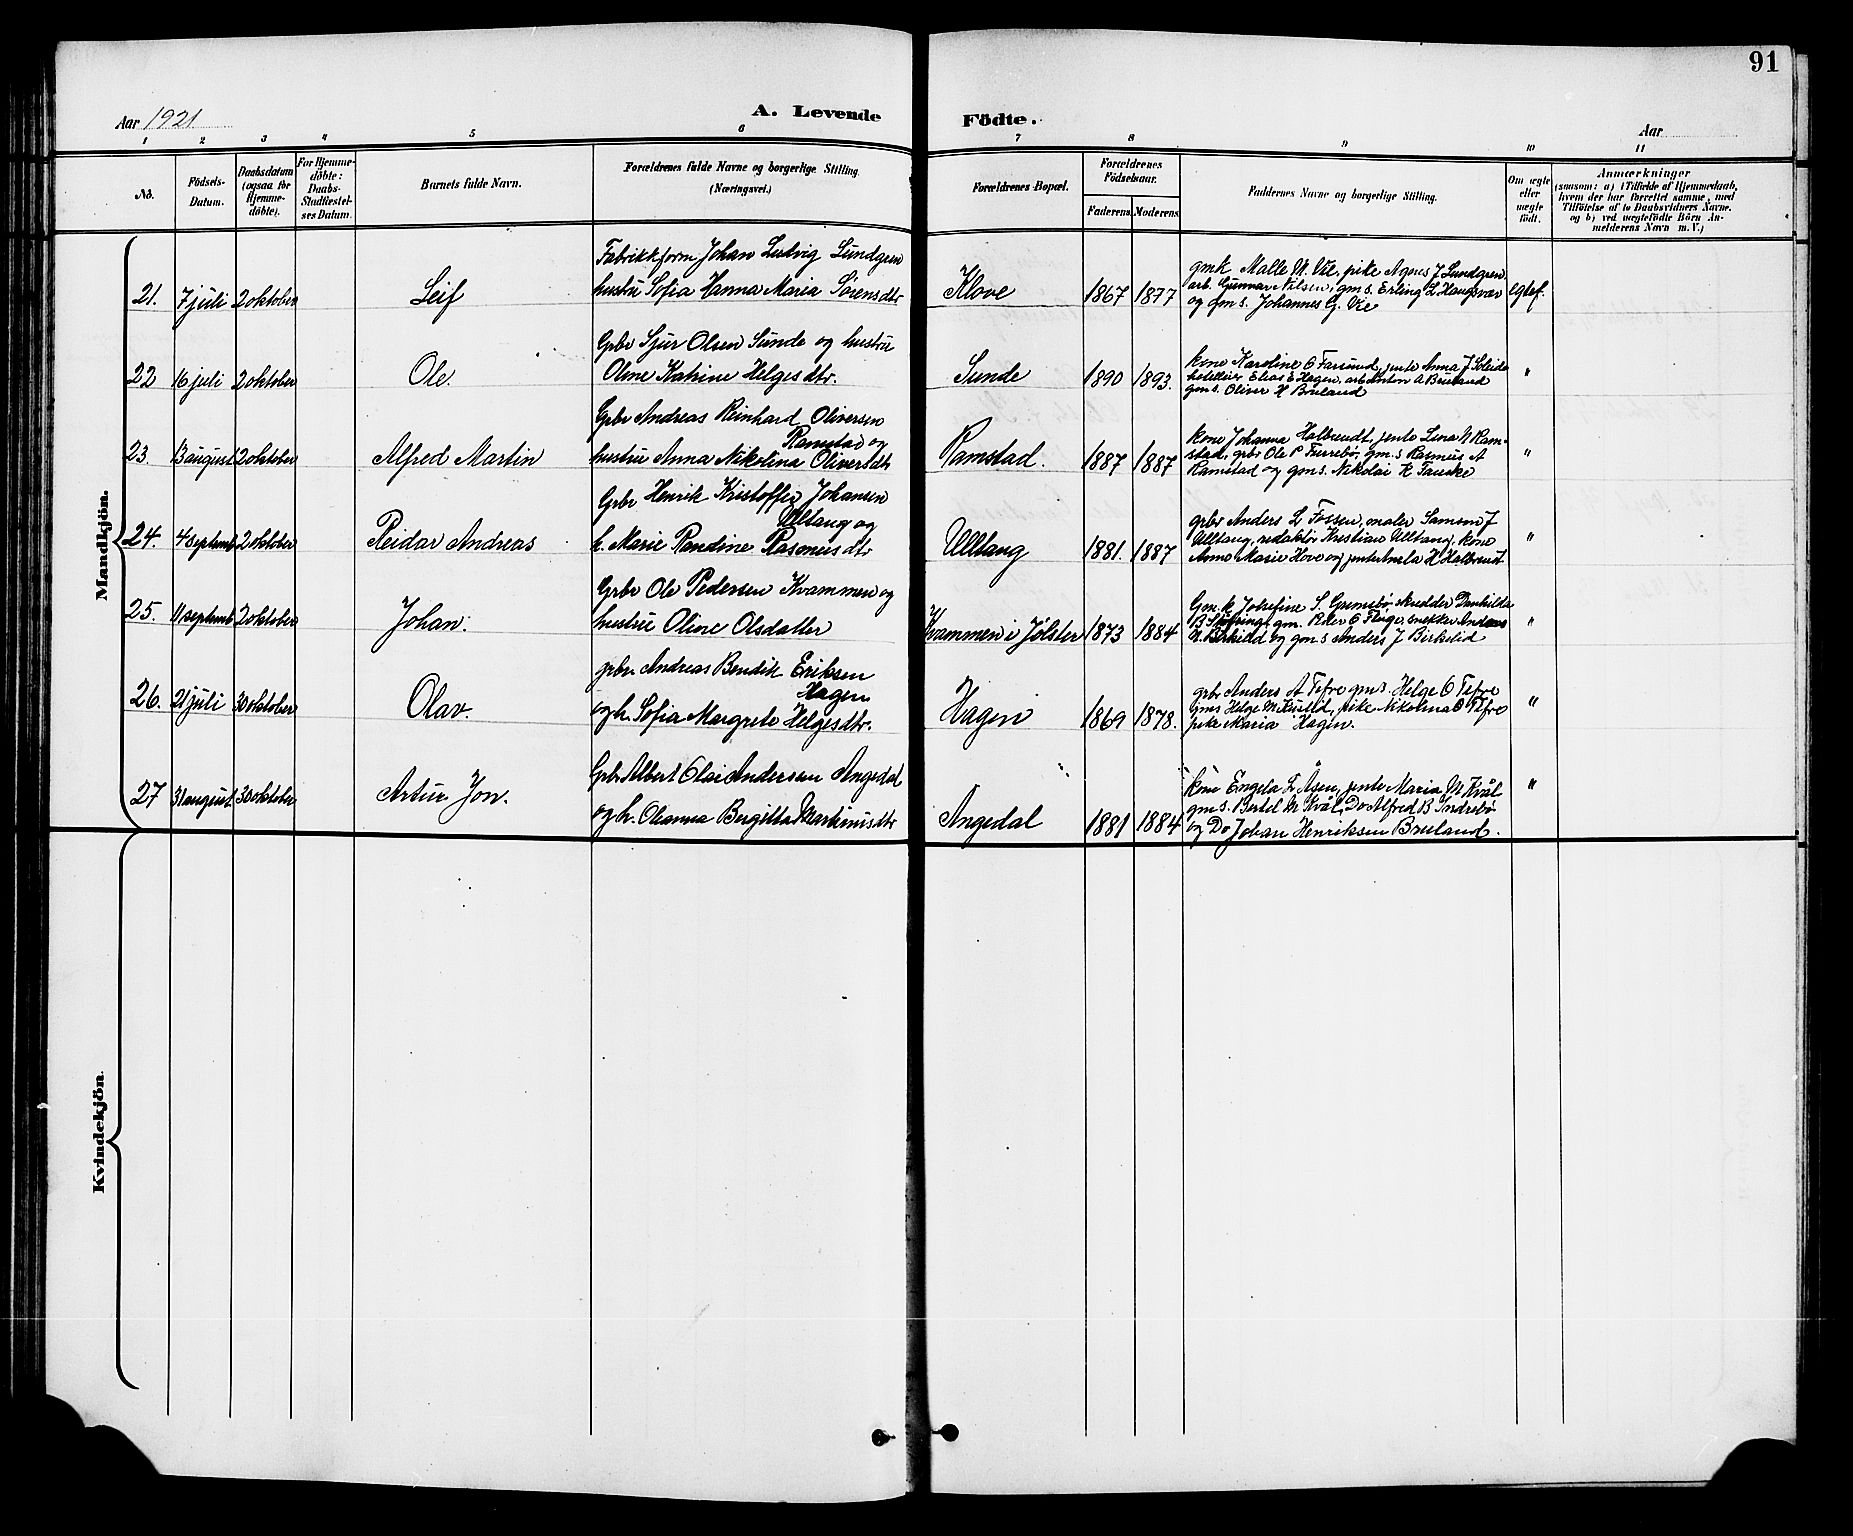 91
Aar 1921
A. Levende Födte.
Aar
1 2 3 4 5 6 7 8 9 10 11
No.
Födsels-Datum.
Daabsdatum (ogsaa for Hjemme-döbte).
For Hjemme-döbte: Daabs-Stadfæstel-ses Datum.
Barnets fulde Navn.
Forældrenes fulde Navne og borgerlige Stilling (Næringsvei.)
Forældrenes Bopæl.
Forældrenes Födselsaar.
Faderens Moderens
Faddernes Navne og borgerlige Stilling.
Om ægte eller uægte födt.
Anmærkninger
(saasom: a) i Tilfælde af Hjemmedaab,
hvem der har forrettet samme, med
Tilföielse af to Daabsvidners Navne.
og b) ved uægtefödte Börn An-
melderens Navn m. V.)
Mandkjön.
21. 7 juli 2 oktober Leif
Fabrikkform Johan Ludvig Lundgren
hustru Sofia Hanna Maria Sörensdtr
Klove 1867 1877
gmk Malle M. Vie, pike Agnes J Lundgren
arb. Gunnar Nilsen, gm s. Erling L Haugsvær
og gm s. Johannes G. Vie
egtef.
22 16 juli 2 oktober Ole.
Grbr Sjur Olsen Sunde og hustru
Oline Katrine Helgesdtr.
Sunde 1890 1893.
kone Karoline O Farsund, jente Anna J Soleide
hotelleier Elias E Hagen, arb Anton A Bruland
gm s. Oliver H Bruland
"
23. 13 august 2 oktober Alfred Martin
Grbr Andreas Reinhard Oliversen
Ramstad og
hustru Anna Nikolina Oliversdtr
Ramstad. 1887 1887
kone Johanna Halbrendt, jente Lina N Ram-
stad, grbr Ole P Furrebö, gm. s Rasmus A
Ramstad og gm s. Nikolai K Fauske
"
24. 4 septemb 2 oktober Reidar Andreas
Grbr Henrik Kristoffer Johansen
Ulltang og
h. Marie Randine Rasmusdtr
Ulltang 1881. 1887
grbr Anders L Fossen, maler Samson J
Ulltang, redaktör Kristian Ulltang, kone
Anne Marie Hove og jente Anela H Halbrendt
"
25. 11 septemb 2 oktober Johan.
Grbr Ole Pedersen Kvammen og
hustru Oline Olsdatter
Kvammen i Jölster 1873 1884
Gm. k Josefine S. Grimsbö, skredder Danhilda
B, gm. Peder O Fluge, snekker Anders
N. Birkelid og gm s Anders J Birkelid
"
26. 21 juli 30 oktober Olav.
grbr. Andreas Bendik Eriksen
Hagen
og h. Sofia Margrete Helgesdtr.
Hagen 1869 1878.
grbr Anders A Tefre gm s. Helge O Tefre
gm s Helge M, pike Nikolina O Tefre
pike Maria Hagen.
"
27 31 august 30 oktober Artur Jon.
Grbr Albert Olai Andersen Angedal
og h. Oleanna Bergitta Markusdtr
Angedal 1881 1884
kone Engela L Åsen, jente Maria M Kvål
gm s. Bertel M Kvål, Do Alfred B Indrebö
og Do Johan Henriksen Bruland.
"
Kvindekjön.